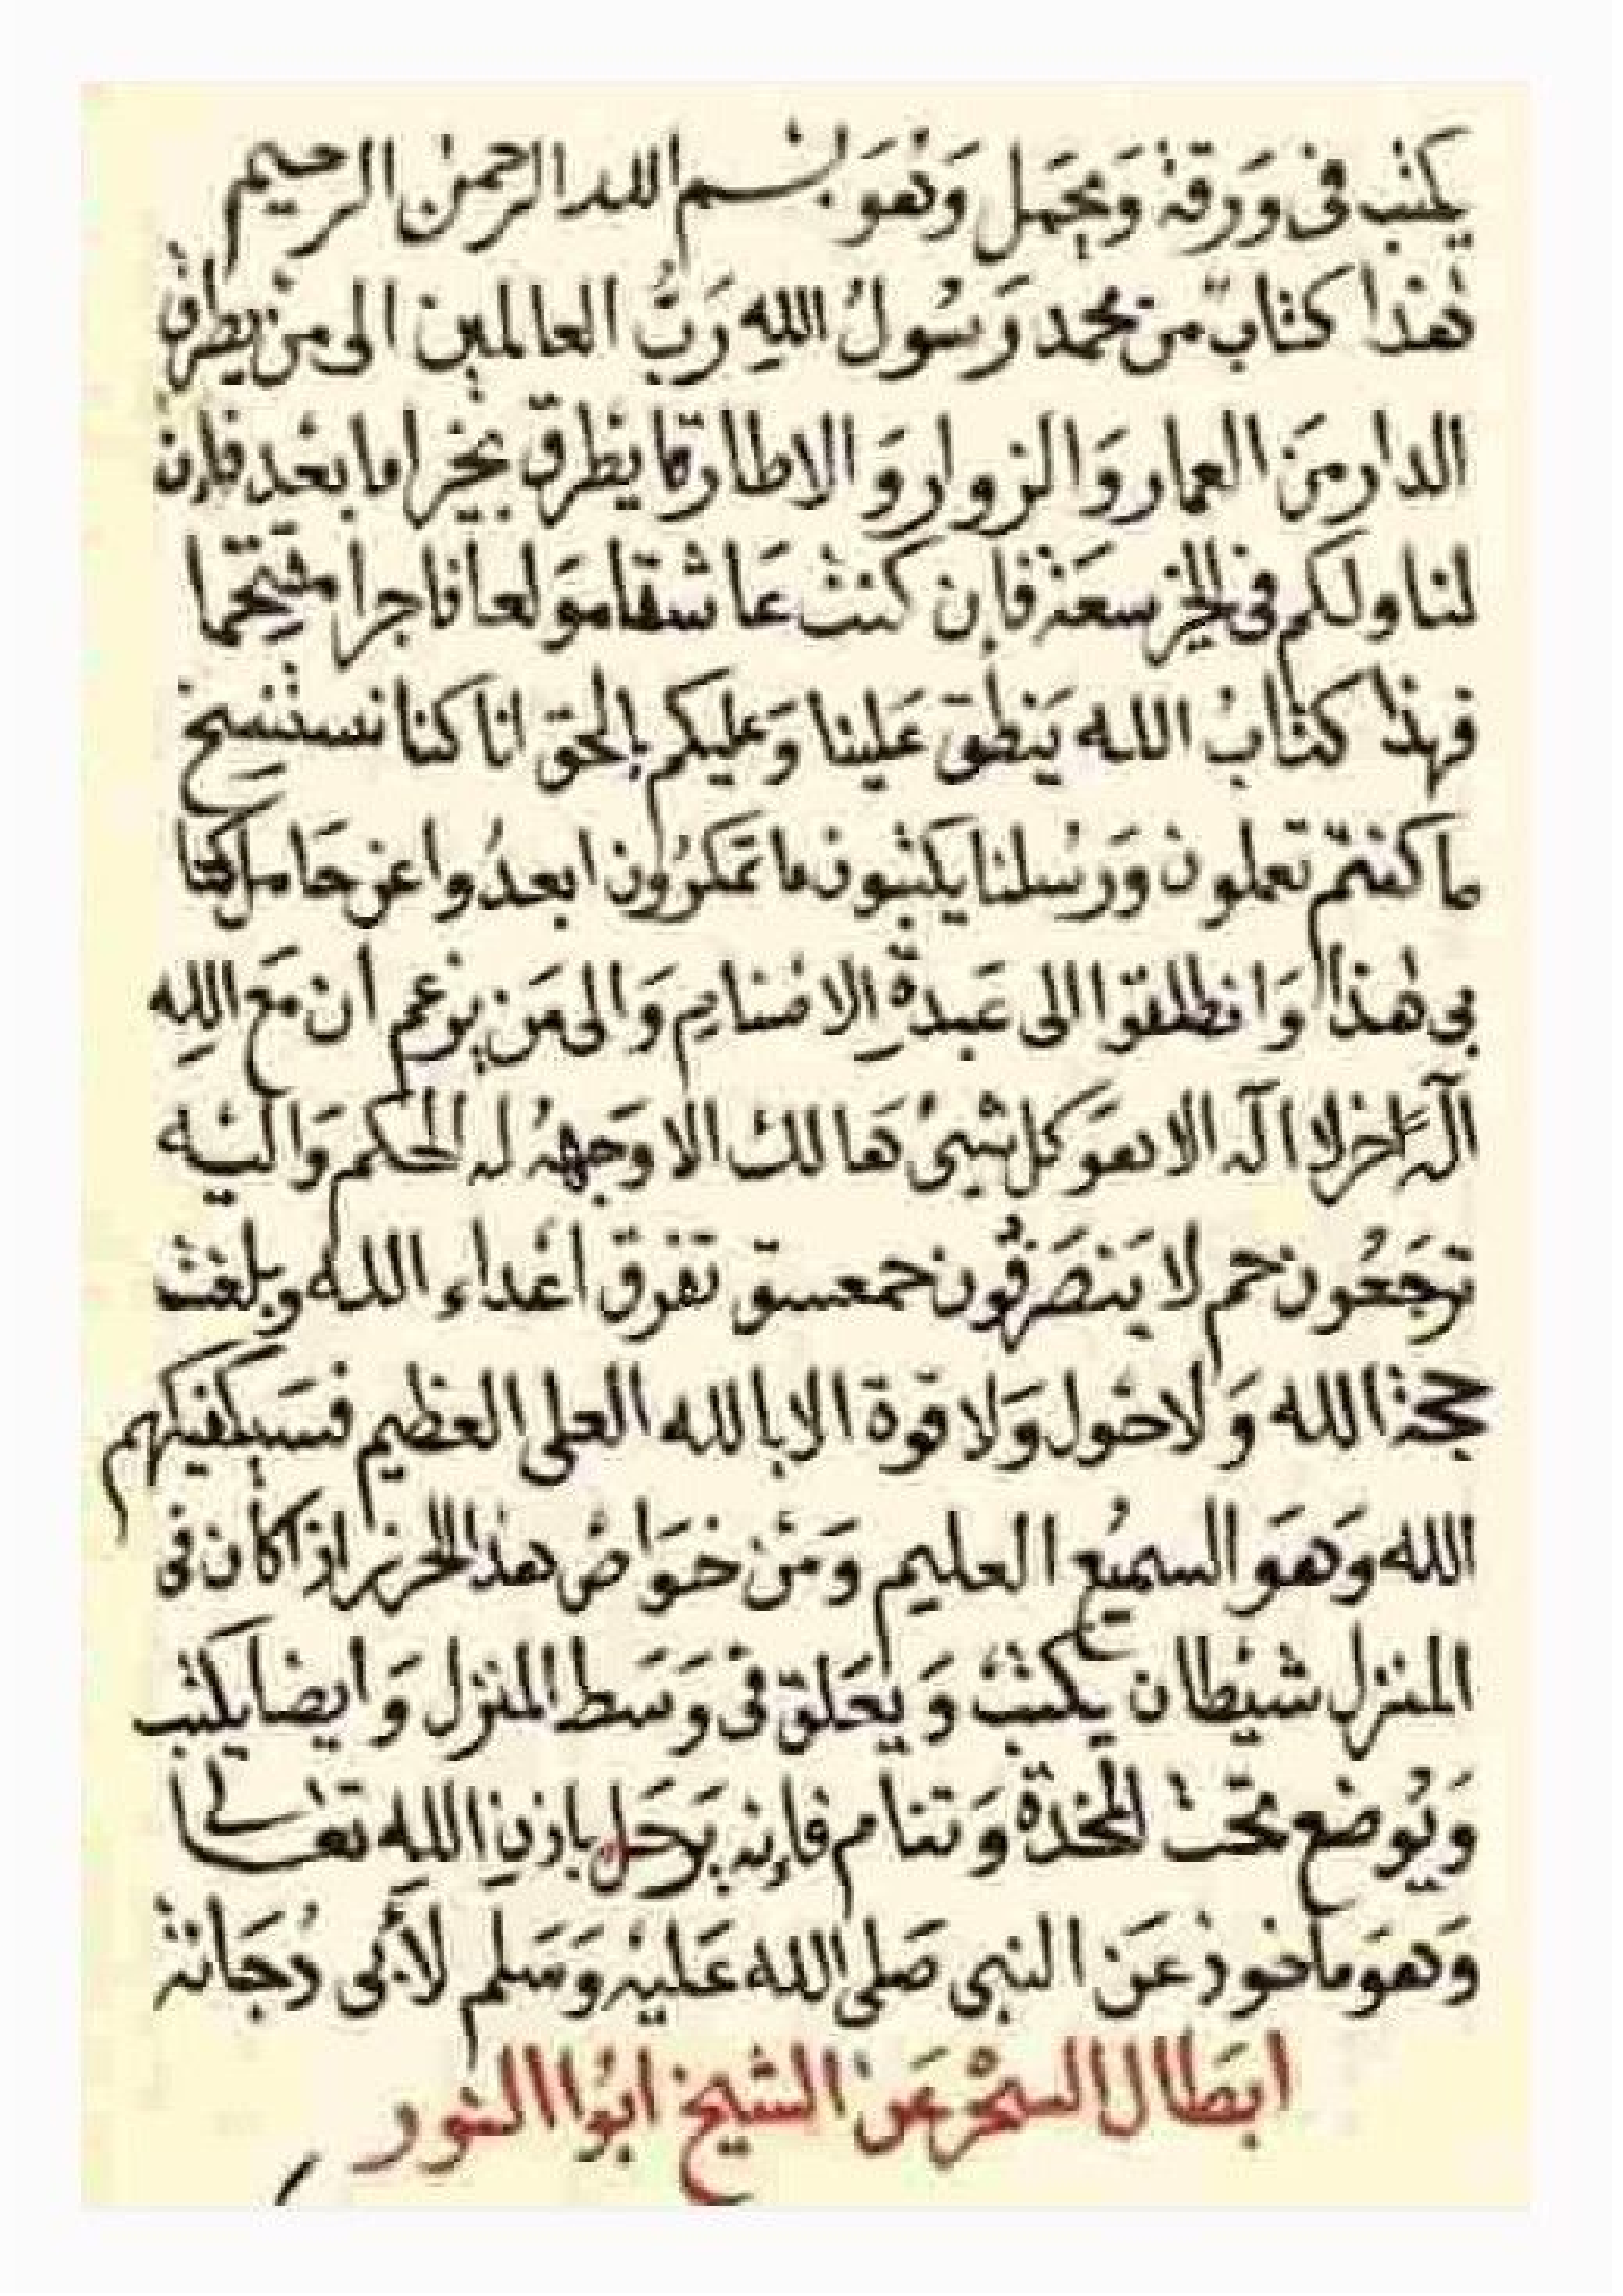 يكتب في ورقة ويحمل وهو بسم الله الرحمن الرحيم
هذا كتاب من محمد رسول الله رب العالمين الى من يطرق
الدار من العمار والزوار والا طارقا يطرق بخير اما بعد فان
لنا ولكم في الخير سعة فان كنت عاشقا مولعا فاجرا مقتحما
فهذا كتاب الله ينطق علينا وعليكم بالحق انا كنا نستنسخ
ما كنتم تعملون ورسلنا يكتبون ما تمكرون ابعدوا عن حامل كتا
بى هذا وانطلقوا الى عبدة الاصنام والى من يزعم ان مع الله
اله اخر لا اله الا هو كل شيئ هالك الا وجهه له الحكم واليه
ترجعون حم لا ينصرفون حمعسق تفرق اعداء الله وبلغت
حجة الله ولا حول ولا قوة الا بالله العلى العظيم فسيكفيكهم
الله وهو السميع العليم ومن خواص هذا الحرز اذا كان فى
المنزل شيطان يكتب ويعلق فى وسط المنزل وايضا يكتب
ويوضع تحت المخدة وتنام فإنه يرحل بإذن الله تعالى
وهو مأخوذ عن النبي صلى الله عليه وسلم لأبى دجانة
ابطال السحر عن الشيخ ابوا النور